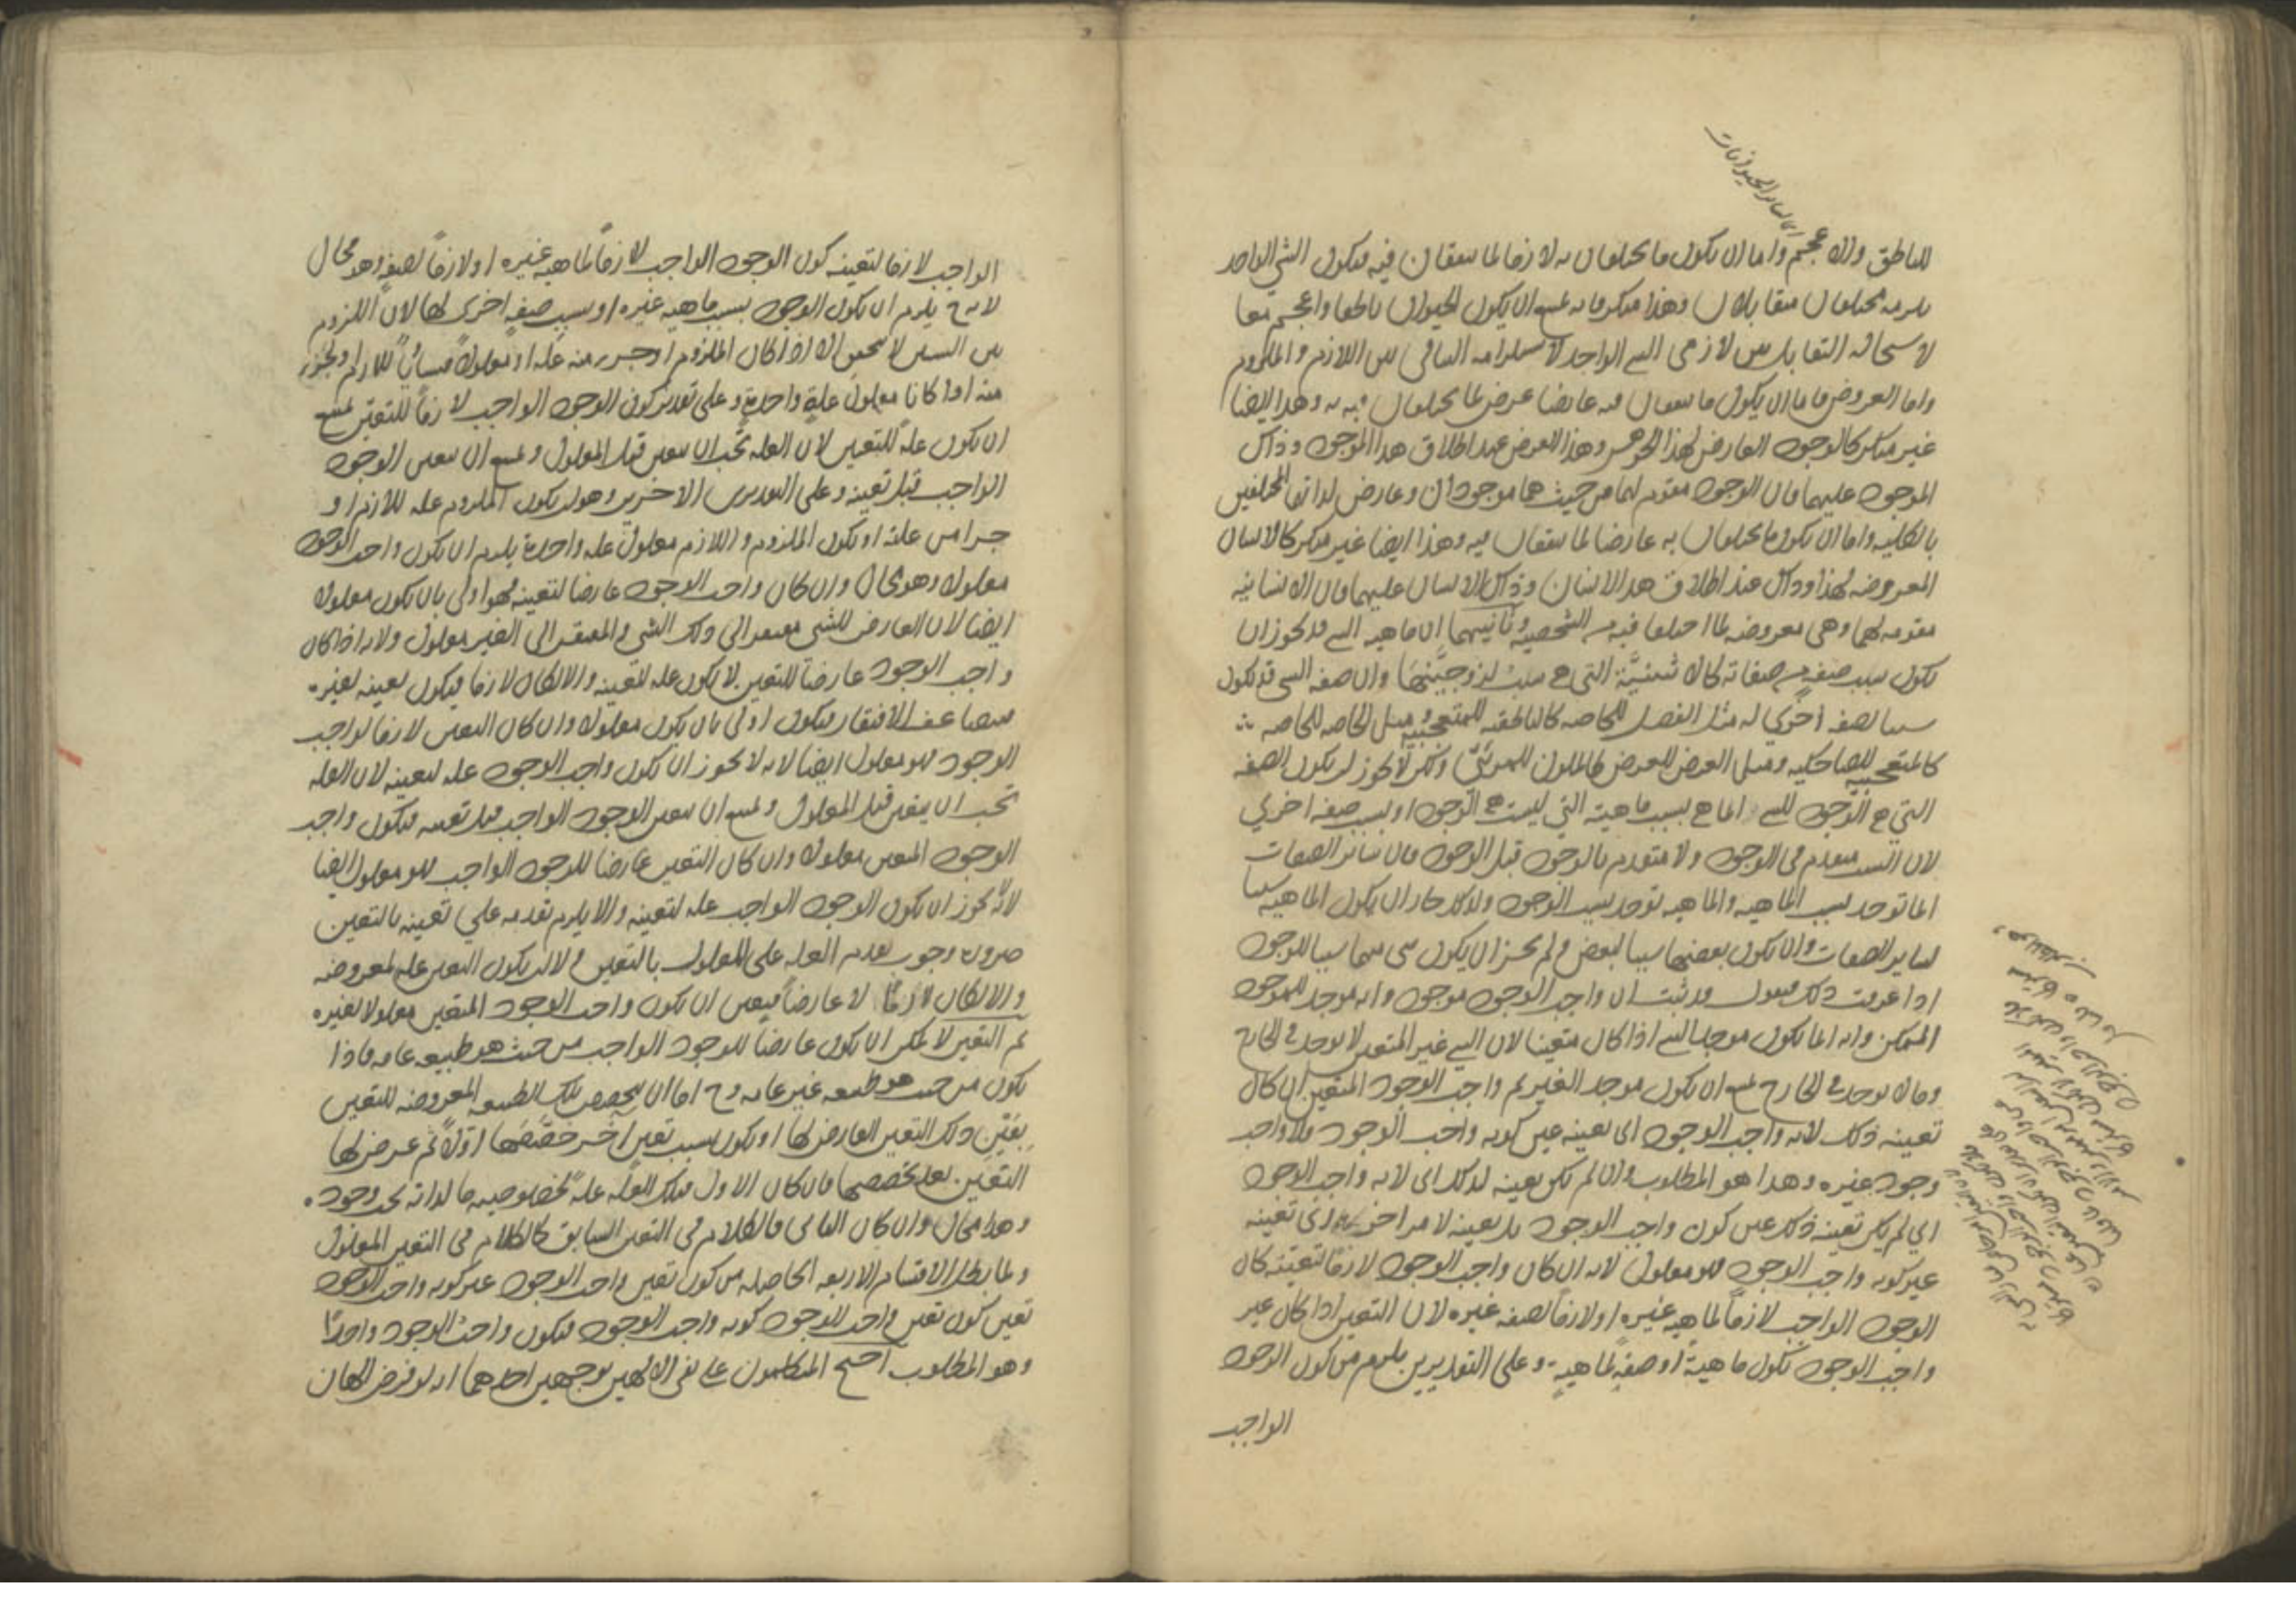 للناطق والاعجم واما ان يكون ما يختلفان به لازما لما يتفقان فيه فيكون الشي الواحد
يلزمه مختلفان متقابلان وهذا منكر فانه يمتنع ان يكون الحيوان ناطقا واعجم معا
لاستحاله التقابل بين لازمى الشي الواحد لاستلزامه التنافى بين اللازم والملزوم
واما العروض فاما ان يكون ما يتفقان فيه عارضا عرض لما يختلفان به وهذا ايضا
غير منكر كالوجود العارض لهذا الجوهر وهذا العرض عند اطلاق هذا الموجود وذاك
الموجود عليهما فان الوجود مقوم لهما من حيث هما موجودان وعارض لذاتهما المختلفين
بالكليه واما ان يكون ما يختلفان به عارضا لما يتفقان فيه وهذا ايضا غير منكر كالانسان
المعروضه لهذا وذاك عند اطلاق هذا الانسان وذاك الانسان عليهما فان الانسانيه
مقومه لهما وهى معروضه لما اختلفا فيه من الشخصيه وثانيهما ان ماهيه الشي قد يجوز ان
يكون سبب صفه من صفاته كالاثنينيّة التي هي سبب لزوجيّتها وان صفه الشي قد تكون
سببا لصفه أخري له مثل الفصل للخاصه كالناطقيه للمتعجبيه ومثل الخاصه للخاصه
كالمتعجبيه للضاحكيه ومثل العرض للعرض كالملون للمرئي ولكن لا يجوز ان يكون الصفه
التي هي الوجود للشي انما هي بسبب ماهيته التي ليست هي الوجود او بسبب صفه اخري
لان السبب متقدم فى الوجود ولا متقدم بالوجود قبل الوجود فان سائر الصفات
انما توجد بسبب الماهيه والماهيه توجد بسبب الوجود ولذلك جاز ان يكون الماهيه سببا
لساير الصفات وان يكون بعضها سببا لبعض ولم يجز ان يكون شى منها سببا للوجود
اذا عرفت ذلك فنقول قد ثبت ان واجب الوجود موجود وانه موجد للموجود
الممكن وانه انما يكون موجدا لشي اذا كان متعينا لان الشي غير المتعين لا يوجد في الخارج
وما لا يوجد في الخارج يمتنع ان يكون موجد الغير ثم واجب الوجود المتعين ان كان
تعينه ذلك لانه واجب الوجود اى تعينه عين كونه واجب الوجود فلا واجب
وجود غيره وهذا هو المطلوب وان لم يكن تعينه لذلك اى لانه واجب الوجود
اي لم يكن تعينه ذلك عين كون واجب الوجود بل تعينه لامر اخر اى تعينه
غير كونه واجب الوجود فهو معلول لانه ان كان واجب الوجود لازما لتعينه كان
الوجود الواجب لازماً لماهيه غيره او لازماً لصفه غيره لان التعين اذا كان غير
واجب الوجود تكون ماهيةً او صفةً لماهيةٍ وعلى التقديرين يلزم من كون الوجود
الواجب
الواجب لازما لتعينه كون الوجود الواجب لازماً لماهيه غيره او لازماً لصفه وهو محال
لانه ح يلزم ان يكون الوجود بسبب ماهيه غيره او بسبب صفه اخرى لها لان اللزوم
بين الشيئين لا يتحقق الا اذا كان الملزوم او جزء منه علة او معلولاً مساوياً للازم او لجزء
منه او كانا معلولى علةٍ واحدةٍ وعلى تقدير كون الوجود الواجب لازماً للتعين يمتنع
ان يكون علةً للتعين لان العله يجب ان تتعين قبل المعلول ويمتنع ان يتعين الوجود
الواجب قبل تعينه وعلى التقديرين الاخرين وهو ان يكون الملزوم عله للازم او
جزا من علته او يكون الملزوم واللازم معلولى عله واحدة يلزم ان يكون واجب الوجود
معلولا وهو محال وان كان واجب الوجود عارضا لتعينه فهو اولى بان يكون معلولا
ايضا لان العارض للشى مفتقر الى ذلك الشي والمفتقر الى الغير معلول ولانه اذا كان
واجب الوجود عارضاً للتعين لا يكون عله لتعينه والا لكان لازما فيكون تعينه لغيره
فيتضاعف الافتقار فيكون اولى بان يكون معلولا وان كان التعين لازما لواجب
الوجود فهو معلول ايضا لانه لا يجوز ان يكون واجب الوجود عله لتعينه لان العله
يجب ان يتعين قبل المعلول ويمتنع ان يتعين الوجود الواجب قبل تعينه فيكون واجب
الوجود المتعين معلولا وان كان التعين عارضا للوجود الواجب فهو معلول ايضا
لانه لا يجوز ان يكون الوجود الواجب عله لتعينه والا يلزم تقدمه علي تعينه بالتعين
ضرورة وجوب تقدم العله على المعلول بالتعين ولا ان يكون التعين عله لمعروضه
والا لكان لازماً لا عارضاً فيتعين ان يكون واجب الوجود المتعين معلولا لغيره
ثم التعين لا يمكن ان يكون عارضاً للوجود الواجب من حيث هو طبيعه عامه فاذا
يكون من حيث هو طبيعه غير عامه وح اما ان يتخصص تلك الطبيعه المعروضه للتعين
بعَيْن ذلك التعين العارض لها او يكون بسبب تعين آخر خصّصَها اوّلاً ثم عرض لها
التعين بعد تخصصها فان كان الاول فتلك العلّه علةً لخصوصيه ما لذاته يجب وجوده
وهذا محال وان كان الثانى فالكلام فى التعين السابق كالكلام فى التعين المعلول
ولما بطل الاقسام الاربعه الحاصله من كون تعين واجب الوجود غير كونه واجب الوجود
تعين كون تعين واجب الوجود كونه واجب الوجود فيكون واجب الوجود واحداً
وهو المطلوب احتج المتكلمون على نفى الالهين بوجهين احدهما انه لو فرض الهان